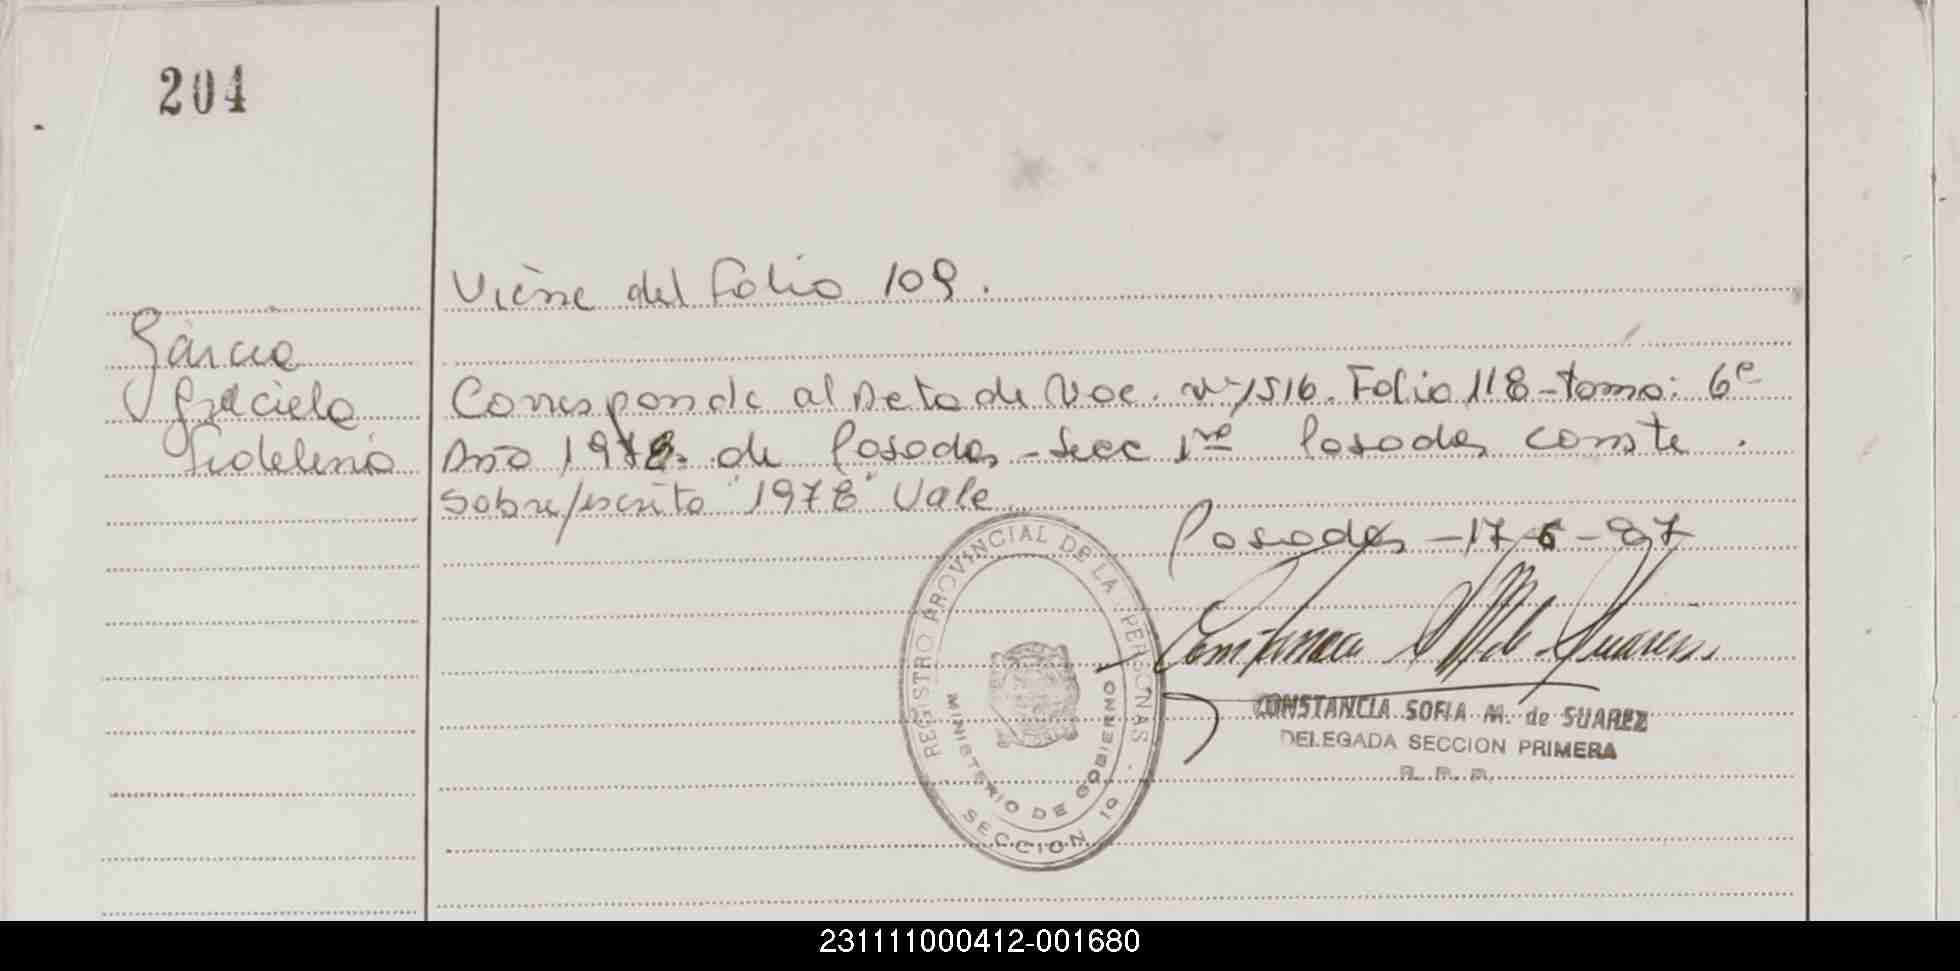 204
Viene del Folio 109.
Garcia
Graciela
Fidelina
Corresponde al Acta de Nac. Nº 1516. Folio 118 - tomo: 6º
Año 1978. de Posadas - Secc 1ra Posadas conste.
Sobre/escrito "1978" Vale
Posadas - 17-6-87
REGISTRO PROVINCIAL DE LA PERSONAS
MINISTERIO DE GOBIERNO
SECCION 1º
CONSTANCIA SOFIA M. de SUAREZ
DELEGADA SECCION PRIMERA
231111000412-001680